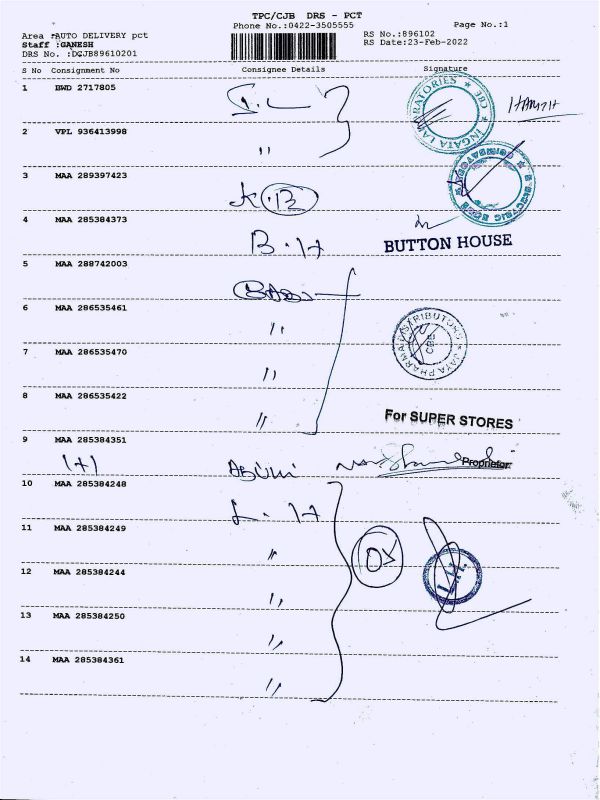 TPC/CJB DRS - PCT
Phone No.:0422-3505555
Page No.:1
Area :AUTO DELIVERY pct
RS No.:896102
Staff :GANESH
RS Date:23-Feb-2022
DRS No. :DCJB89610201
S No Consignment No Consignee Details Signature
1 BWD 2717805
2 VPL 936413998 "
3 MAA 289397423 K.B
4 MAA 285384373 B.H
BUTTON HOUSE
5 MAA 288742003
6 MAA 286535461 "
JAYA PHARMA DISTRIBUTORS CBE
7 MAA 286535470 "
8 MAA 286535422 "
For SUPER STORES
9 MAA 285384351
(+)
Proprietor
10 MAA 285384248 L.H
11 MAA 285384249 "
12 MAA 285384244 "
13 MAA 285384250 "
14 MAA 285384361 "